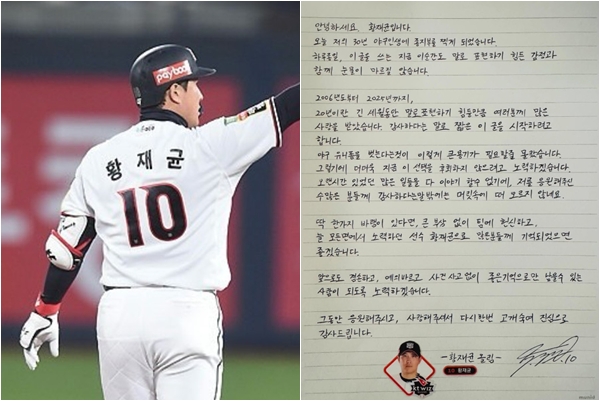 payboc
황재균
10
안녕하세요. 황재균입니다.
오늘 저의 30년 야구인생에 종지부를 찍게 되었습니다.
하루종일, 이 글을 쓰는 지금 이순간도 말로 표현하기 힘든 감정과
함께 눈물이 마르질 않습니다.
2006년도부터 2025년까지,
20년이란 긴 세월동안 말로표현하기 힘들만큼 여러분께 많은
사랑을 받았습니다. 감사하다는 말로 짧은 이 글을 시작하려고
합니다.
야구 유니폼을 벗는다는것이 이렇게 큰용기가 필요할줄 몰랐습니다.
그렇기에 더더욱 지금 이 선택을 후회하지 않으려고 노력하겠습니다.
오랜시간 있었던 많은 일들을 다 이야기 할수 없기에, 저를 응원해주신
수많은 분들께 감사하다는말밖에는 머릿속에 떠 오르지 않네요.
딱 한가지 바램이 있다면, 큰 부상 없이 팀에 헌신하고,
늘 모든면에서 노력하던 선수 황재균으로 야구팬들께 기억되었으면
좋겠습니다.
앞으로도 겸손하고, 예의바르고 사건 사고 없이 좋은기억으로만 남을수 있는
사람이 되도록 노력하겠습니다.
그동안 응원해주시고, 사랑해주셔서 다시한번 고개숙여 진심으로
감사드립니다.
-황재균 올림-
10
kt wiz
10 황재균